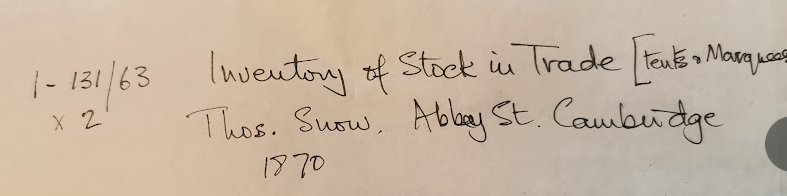 1 - 131/63 Inventory of Stock in Trade [tents & Marquees
x 2 Thos. Snow. Abbey St. Cambridge
1870